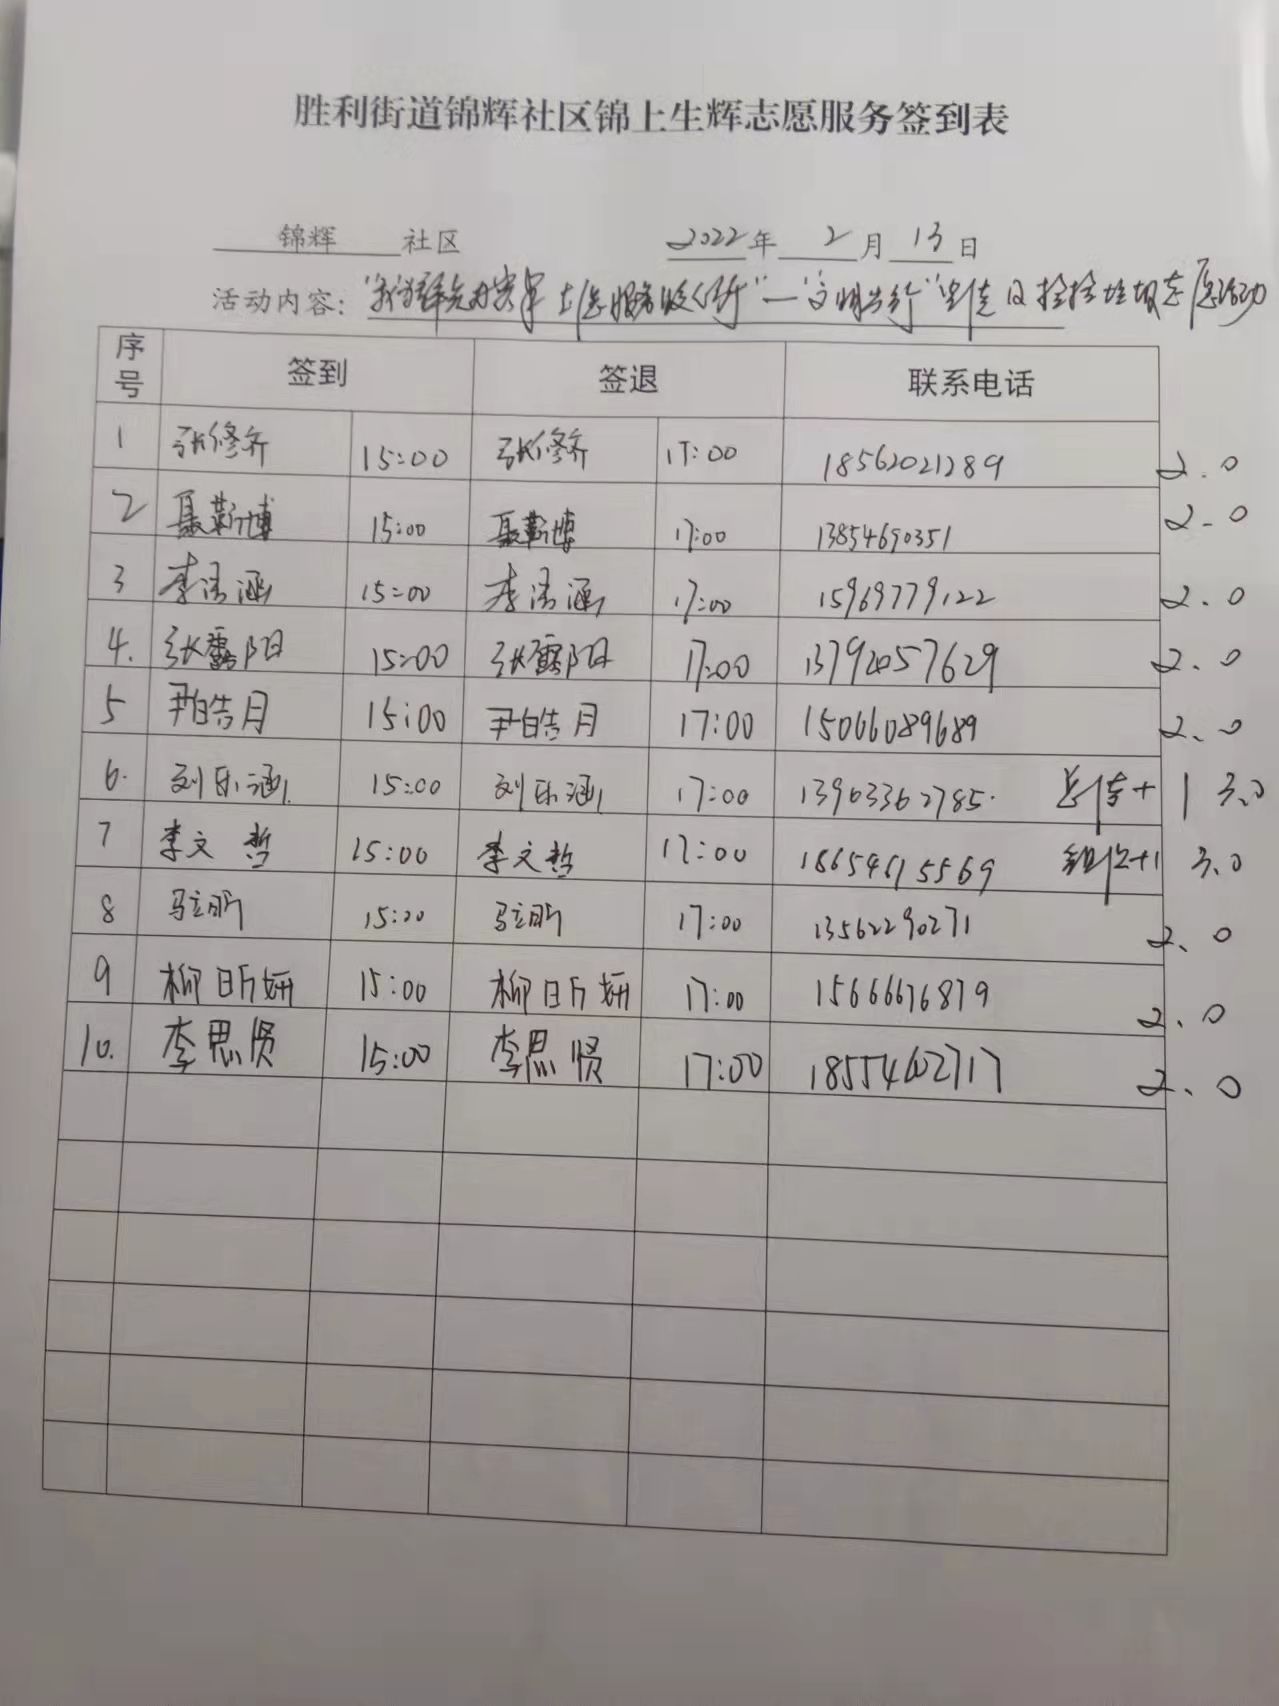 胜利街道锦辉社区锦上生辉志愿服务签到表
锦辉 社区 2022年 2 月 13 日
活动内容：“我为群众办实事 志愿服务”一“文明出行”宣传及捡拾垃圾志愿活动
序号 签到 签退 联系电话
1 张修齐 15:00 张修齐 17:00 18562021289 2.0
2 聂靳博 15:00 聂靳博 17:00 13854690351 2.0
3 李涵 15:00 李涵 17:00 15969779122 2.0
4. 张露阳 15:00 张露阳 17:00 13792057629 2.0
5 尹皓月 15:00 尹皓月 17:00 15066089689 2.0
6. 刘乐涵 15:00 刘乐涵 17:00 13963362785. 宣传+1 3.0
7 李文哲 15:00 李文哲 17:00 18654615569 +1 3.0
8 马立昕 15:00 马立昕 17:00 13562290271 2.0
9 柳昕妍 15:00 柳昕妍 17:00 15666676879 2.0
10. 李思贤 15:00 李思贤 17:00 18554602717 2.0